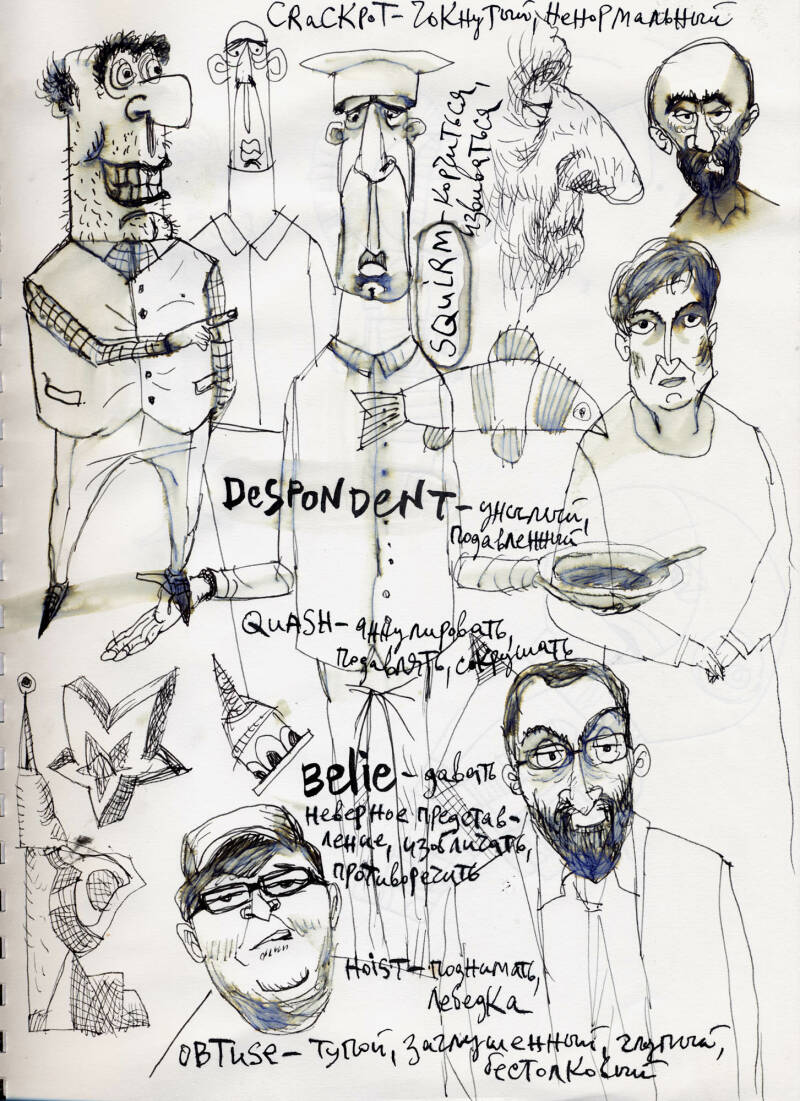 CRACKPOT - ЧОКНУТЫЙ, НЕНОРМАЛЬНЫЙ
SQUIRM - КОРЧИТЬСЯ,
ИЗВИВАТЬСЯ,
DeSPONDENT - УНЫЛЫЙ,
ПОДАВЛЕННЫЙ
QUASH - АННУЛИРОВАТЬ,
ПОДАВЛЯТЬ, СОКРУШАТЬ
Belie - давать
неверное представ-
ление, изобличать,
противоречить
HOIST - ПОДНИМАТЬ,
ЛЕБЕДКА
OBTUSE - ТУПОЙ, ЗАГЛУШЕННЫЙ, ГЛУПЫЙ,
БЕСТОЛКОВЫЙ